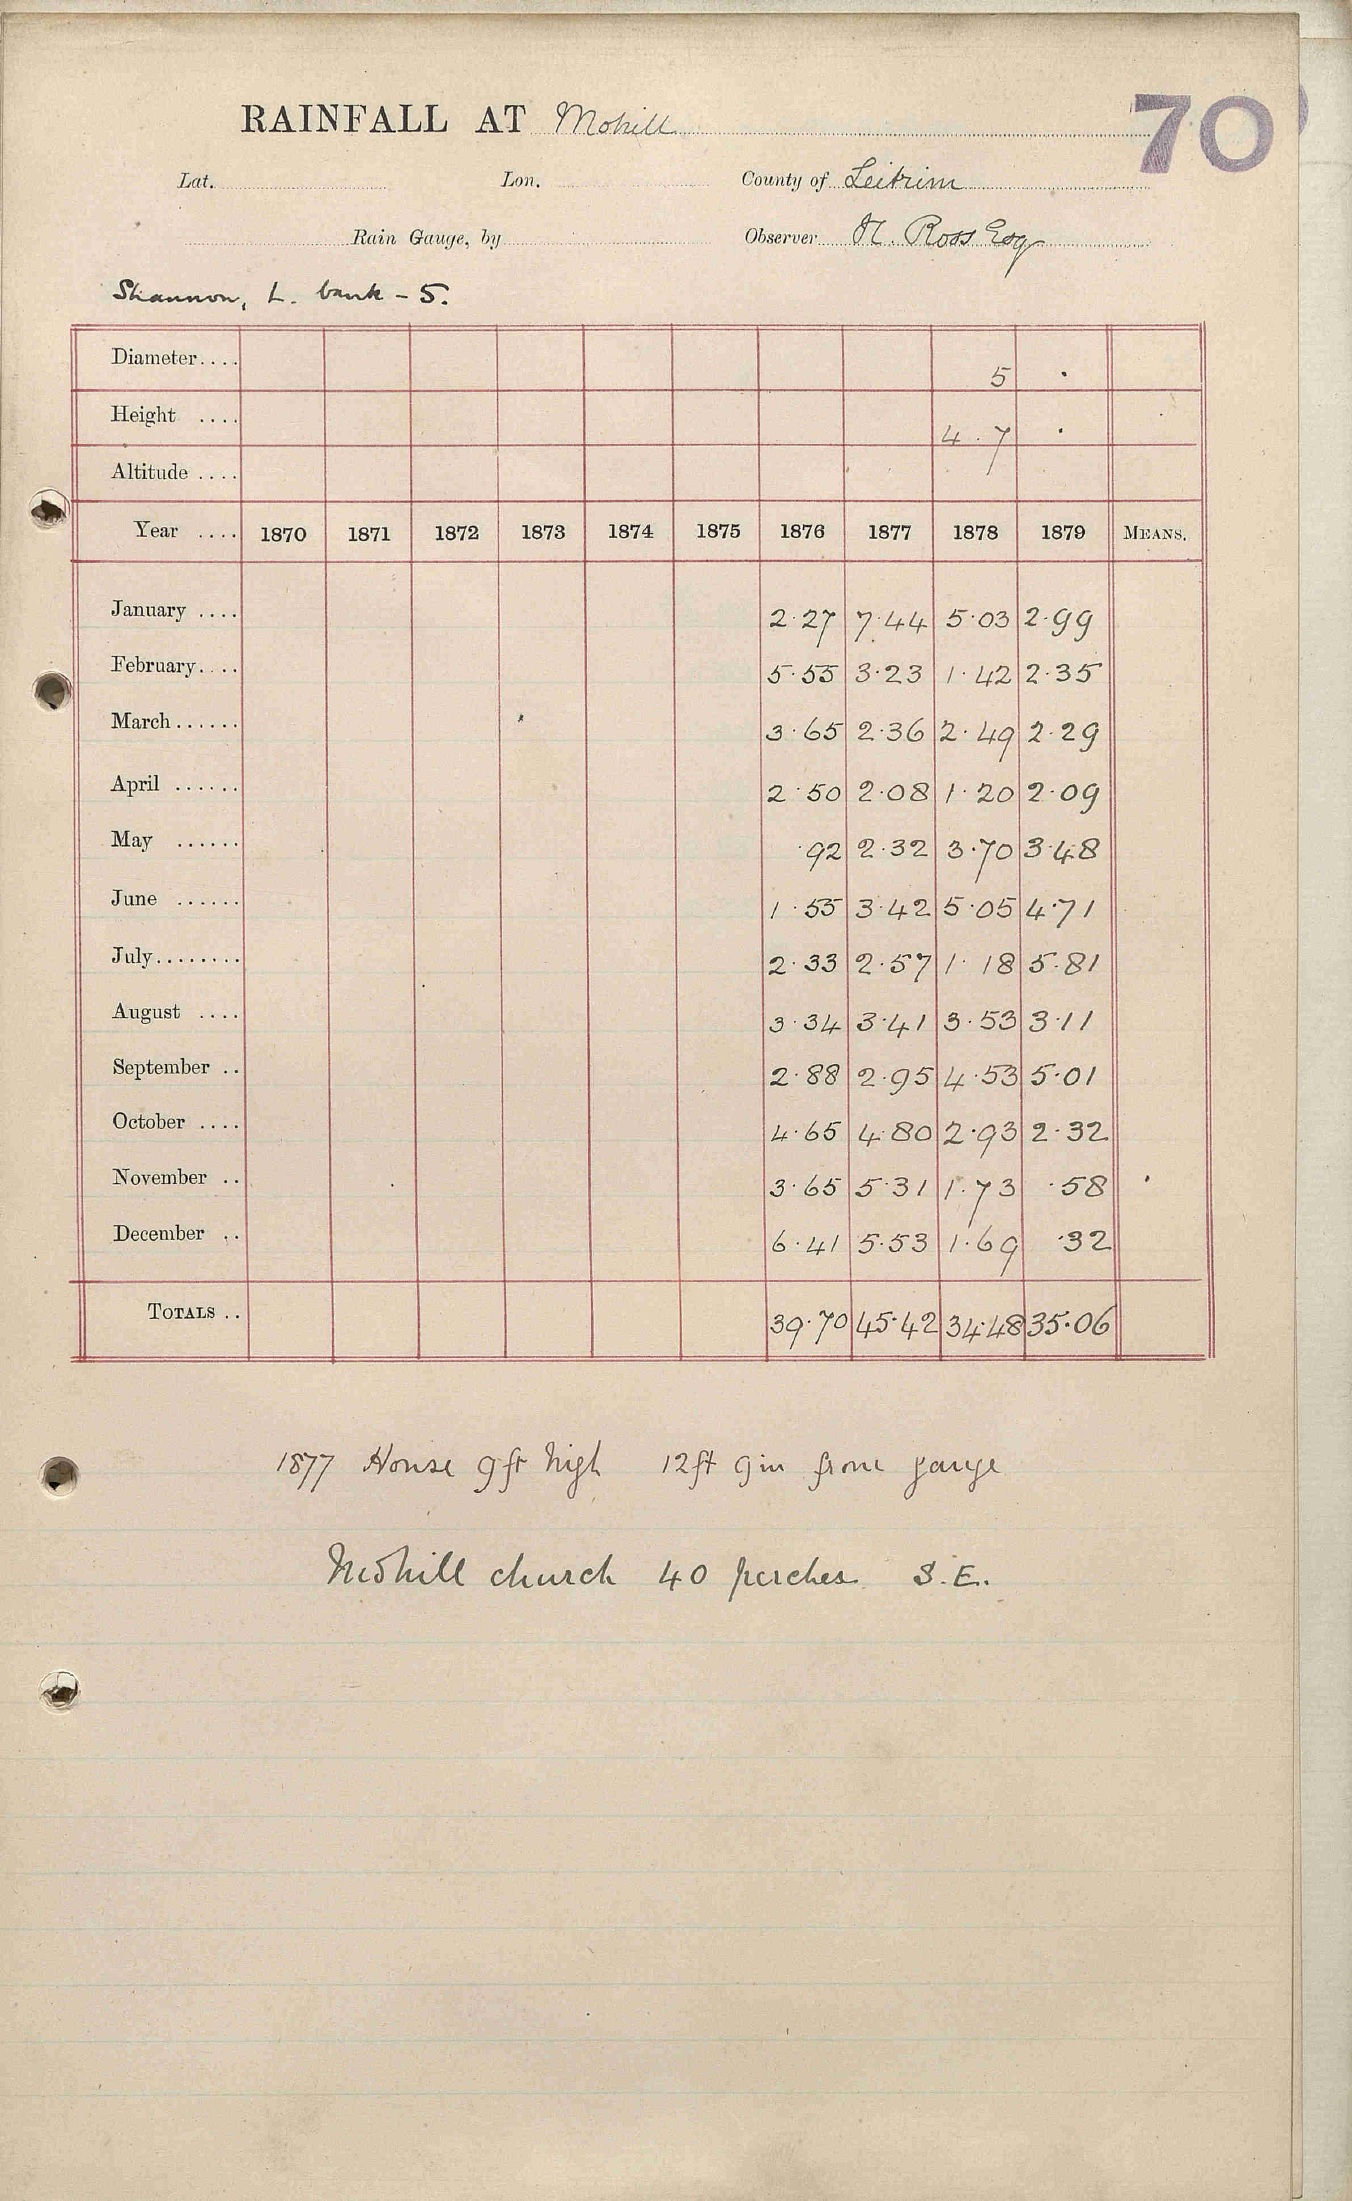 70
RAINFALL AT Mohill
Lat. Lon. County of Leitrim
Rain Gauge, by Observer Ross Esq
Shannon, L. bank - 5.
Diameter.... 5 .
Height .... 4.7 .
Altitude ....
Year .... 1870 1871 1872 1873 1874 1875 1876 1877 1878 1879 MEANS.
January .... 2.27 7.44 5.03 2.99
February.... 5.55 3.23 1.42 2.35
March...... 3.65 2.36 2.49 2.29
April ...... 2.50 2.08 1.20 2.09
May ...... .92 2.32 3.70 3.48
June ...... 1.55 3.42 5.05 4.71
July........ 2.33 2.57 1.18 5.81
August .... 3.34 3.41 3.53 3.11
September .. 2.88 2.95 4.53 5.01
October .... 4.65 4.80 2.93 2.32
November .. 3.65 5.31 1.73 .58
December .. 6.41 5.53 1.69 .32
TOTALS .. 39.70 45.42 34.48 35.06
1877 House 9ft high 12ft 9in from gauge
Mohill church 40 perches S.E.